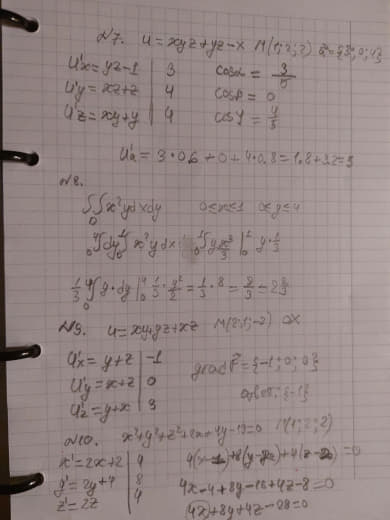 №7. u = xyz + yz - x M(1; 2; 2) a = {3; 0; 4}
U'x = yz - 1 | 3 cosα = 3/5
U'y = xz + z | 4 cosβ = 0
U'z = xy + y | 4 cosγ = 4/5
U'a = 3 • 0.6 + 0 + 4 • 0.8 = 1.8 + 3.2 = 5
№8.
∫∫ x²y dx dy 0≤x≤1 0≤y≤4
∫₀⁴ dy ∫₀¹ x²y dx = ∫₀ y x³/3 |₀¹ y • 1/3
1/3 ∫₀⁴ y • dy |₀⁴ 1/3 • y²/2 = 1/3 • 8 = 8/3 = 2 2/3
№9. u = xy + yz + xz M(2; 1; -2) OX
U'x = y + z | -1
U'y = x + z | 0 grad F = {-1; 0; 3}
U'z = y + x | 3 ответ: {-1}
№10. x² + y² + z² + 2x + 4y - 19 = 0 M(1; 2; 2)
x' = 2x + 2 | 4 4(x - 1) + 8(y - 2) + 4(z - 2) = 0
y' = 2y + 4 | 8 4x - 4 + 8y - 16 + 4z - 8 = 0
z' = 2z | 4 4x + 8y + 4z - 28 = 0